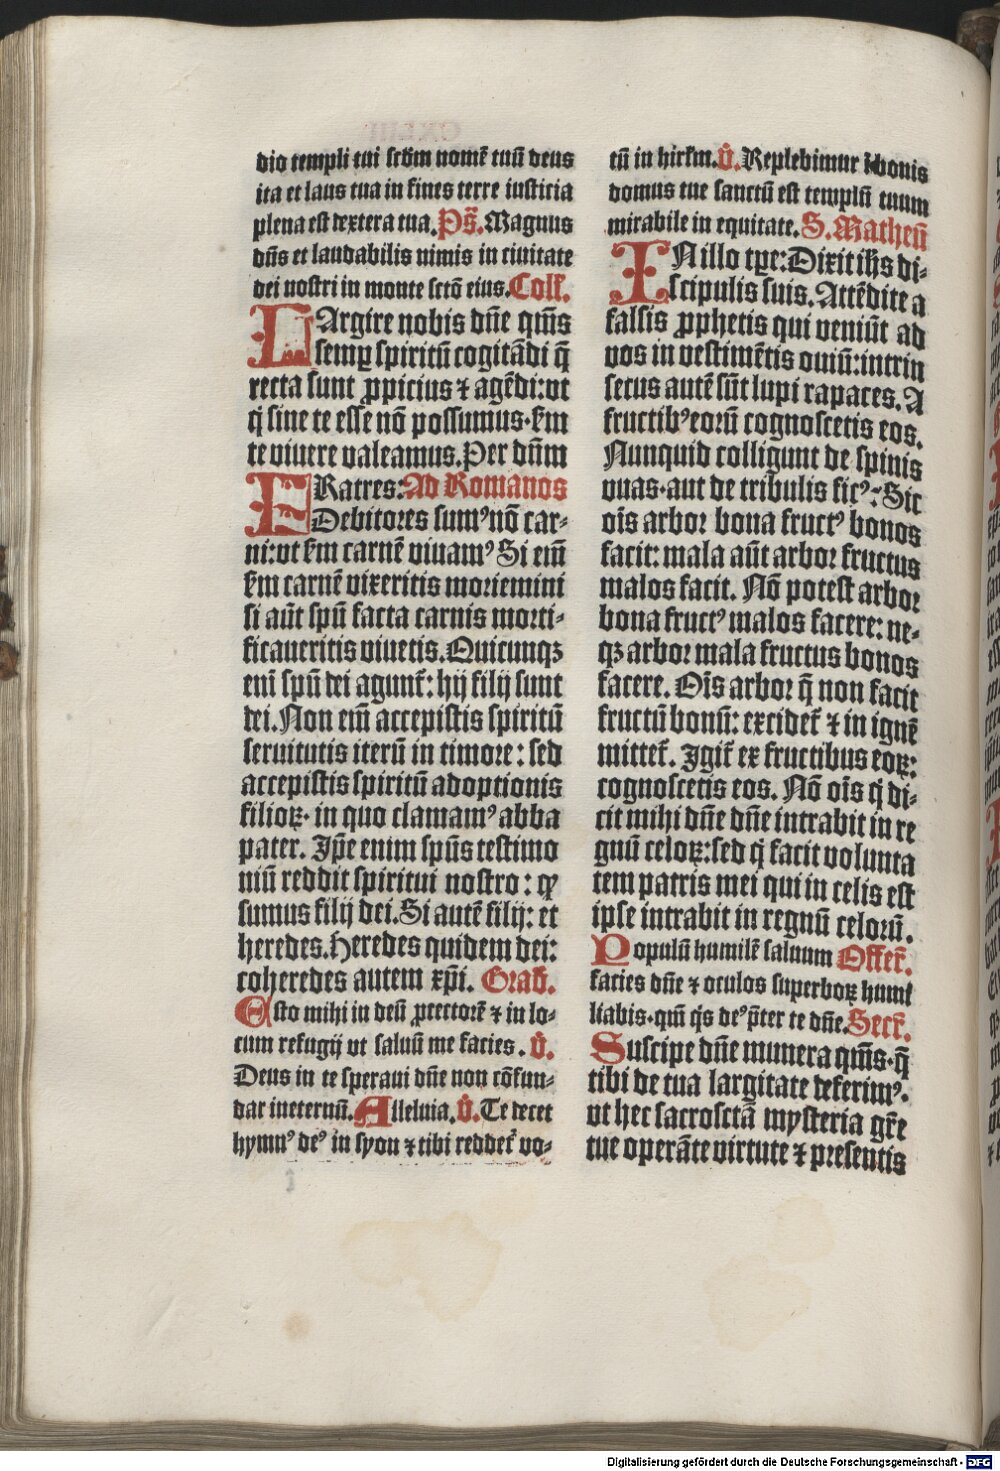 dio templi tui scd̄m nomē tuū deus
ita et laus tua in fines terre iusticia
plena est dextera tua. Ps̄. Magnus
dn̄s et laudabilis nimis in ciuitate
dei nostri in monte sctō eius. Coll̄.
LArgire nobis dn̄e qm̄s
semꝑ spiritū cogitādi q̄
recta sunt ꝓpicius ⁊ agēdi: vt
q̇ sine te esse nō possumus· scd̄m
te viuere valeamus. Per dn̄m
FRatres: Ad Romanos
Debitores sumꝰ nō car-
ni: vt scd̄m carnē viuamꝰ Si eī
scd̄m carnē vixeritis moriemini
si aūt spū facta carnis morti-
ficaueritis viuetis. Quicunqꝫ
enī spū dei agunt᷑: hij filij sunt
dei. Non eī accepistis spiritū
seruitutis iterū in timore: sed
accepistis spiritū adoptionis
filioꝝ· in quo clamamꝰ abba
pater. Ip̄e enim spūs testimo
niū reddit spiritui nostro: ꝙ
sumus filij dei. Si autē filij: et
heredes. Heredes quidem dei:
coheredes autem xp̄i. Grad̄.
Esto mihi in deū ꝓtectorē ⁊ in lo-
cum refugij vt saluū me facies. V̄.
Deus in te speraui dn̄e non cōfun-
dar ineternū. Alleluia. V̄. Te decet
hymnꝰ deꝰ in syon ⁊ tibi reddet᷑ vo-
CXLIII
tū in hirl̄m. V̄. Replebimur ī bonis
domus tue sanctū est templū tuum
mirabile in equitate. S. Matheū
IN illo tꝑe: Dixit iħs di-
scipulis suis. Attēdite a
falsis ꝓphetis qui veniūt ad
vos in vestimētis ouiū: intrin
secus autē sūt lupi rapaces. A
fructibꝰ eorū cognoscetis eos.
Nunquid colligunt de spinis
vuas· aut de tribulis ficꝰ: Sic
oīs arbor bona fructꝰ bonos
facit: mala aūt arbor fructus
malos facit. Nō potest arbor
bona fructꝰ malos facere: ne-
qꝫ arbor mala fructus bonos
facere. Oīs arbor q̄ non facit
fructū bonū: excidet᷑ ⁊ in ignē
mittet᷑. Igit᷑ ex fructibus eoꝝ:
cognoscetis eos. Nō oīs q̇ di-
cit mihi dn̄e dn̄e intrabit in re
gnū celoꝝ: sed q̇ facit volunta
tem patris mei qui in celis est
ipse intrabit in regnū celorū.
Populū humilē saluum Offer̄.
facies dn̄e ⁊ oculos superboꝝ humi
liabis· qm̄ q̇s deꝰ p̄ter te dn̄e. Secr̄.
Suscipe dn̄e munera qm̄s· q̄
tibi de tua largitate deferimꝰ.
vt hec sacrosctā mysteria gr̄e
tue operāte virtute ⁊ presentis
Digitalisierung gefördert durch die Deutsche Forschungsgemeinschaft - DFG